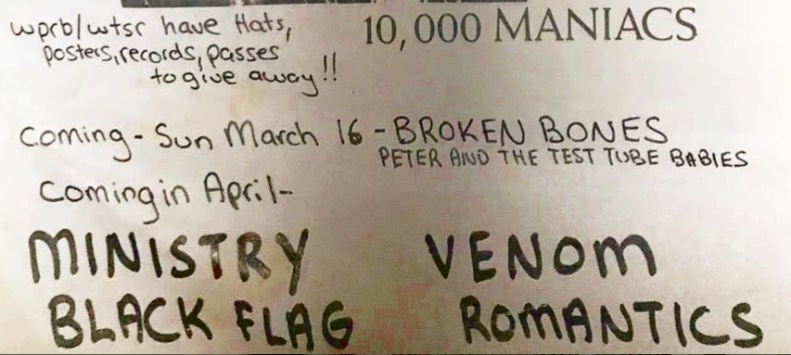 wprb/wtsr have Hats,
posters, records, passes
to give away!!
10,000 MANIACS
Coming - Sun March 16 - BROKEN BONES
PETER AND THE TEST TUBE BABIES
Coming in April-
MINISTRY VENOM
BLACK FLAG ROMANTICS